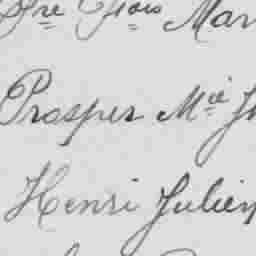 Pre Frois Mar
Prosper Mie J
Henri Julien